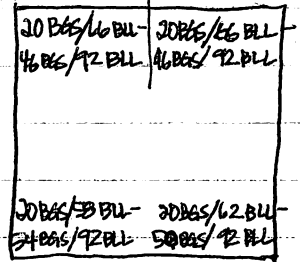 20 BGS/66 BLL- 20 BGS/56 BLL-
46 BGS/92 BLL 46 BGS/92 BLL
20 BGS/58 BLL- 20 BGS/62 BLL-
54 BGS/92 BLL BGS/92 BLL